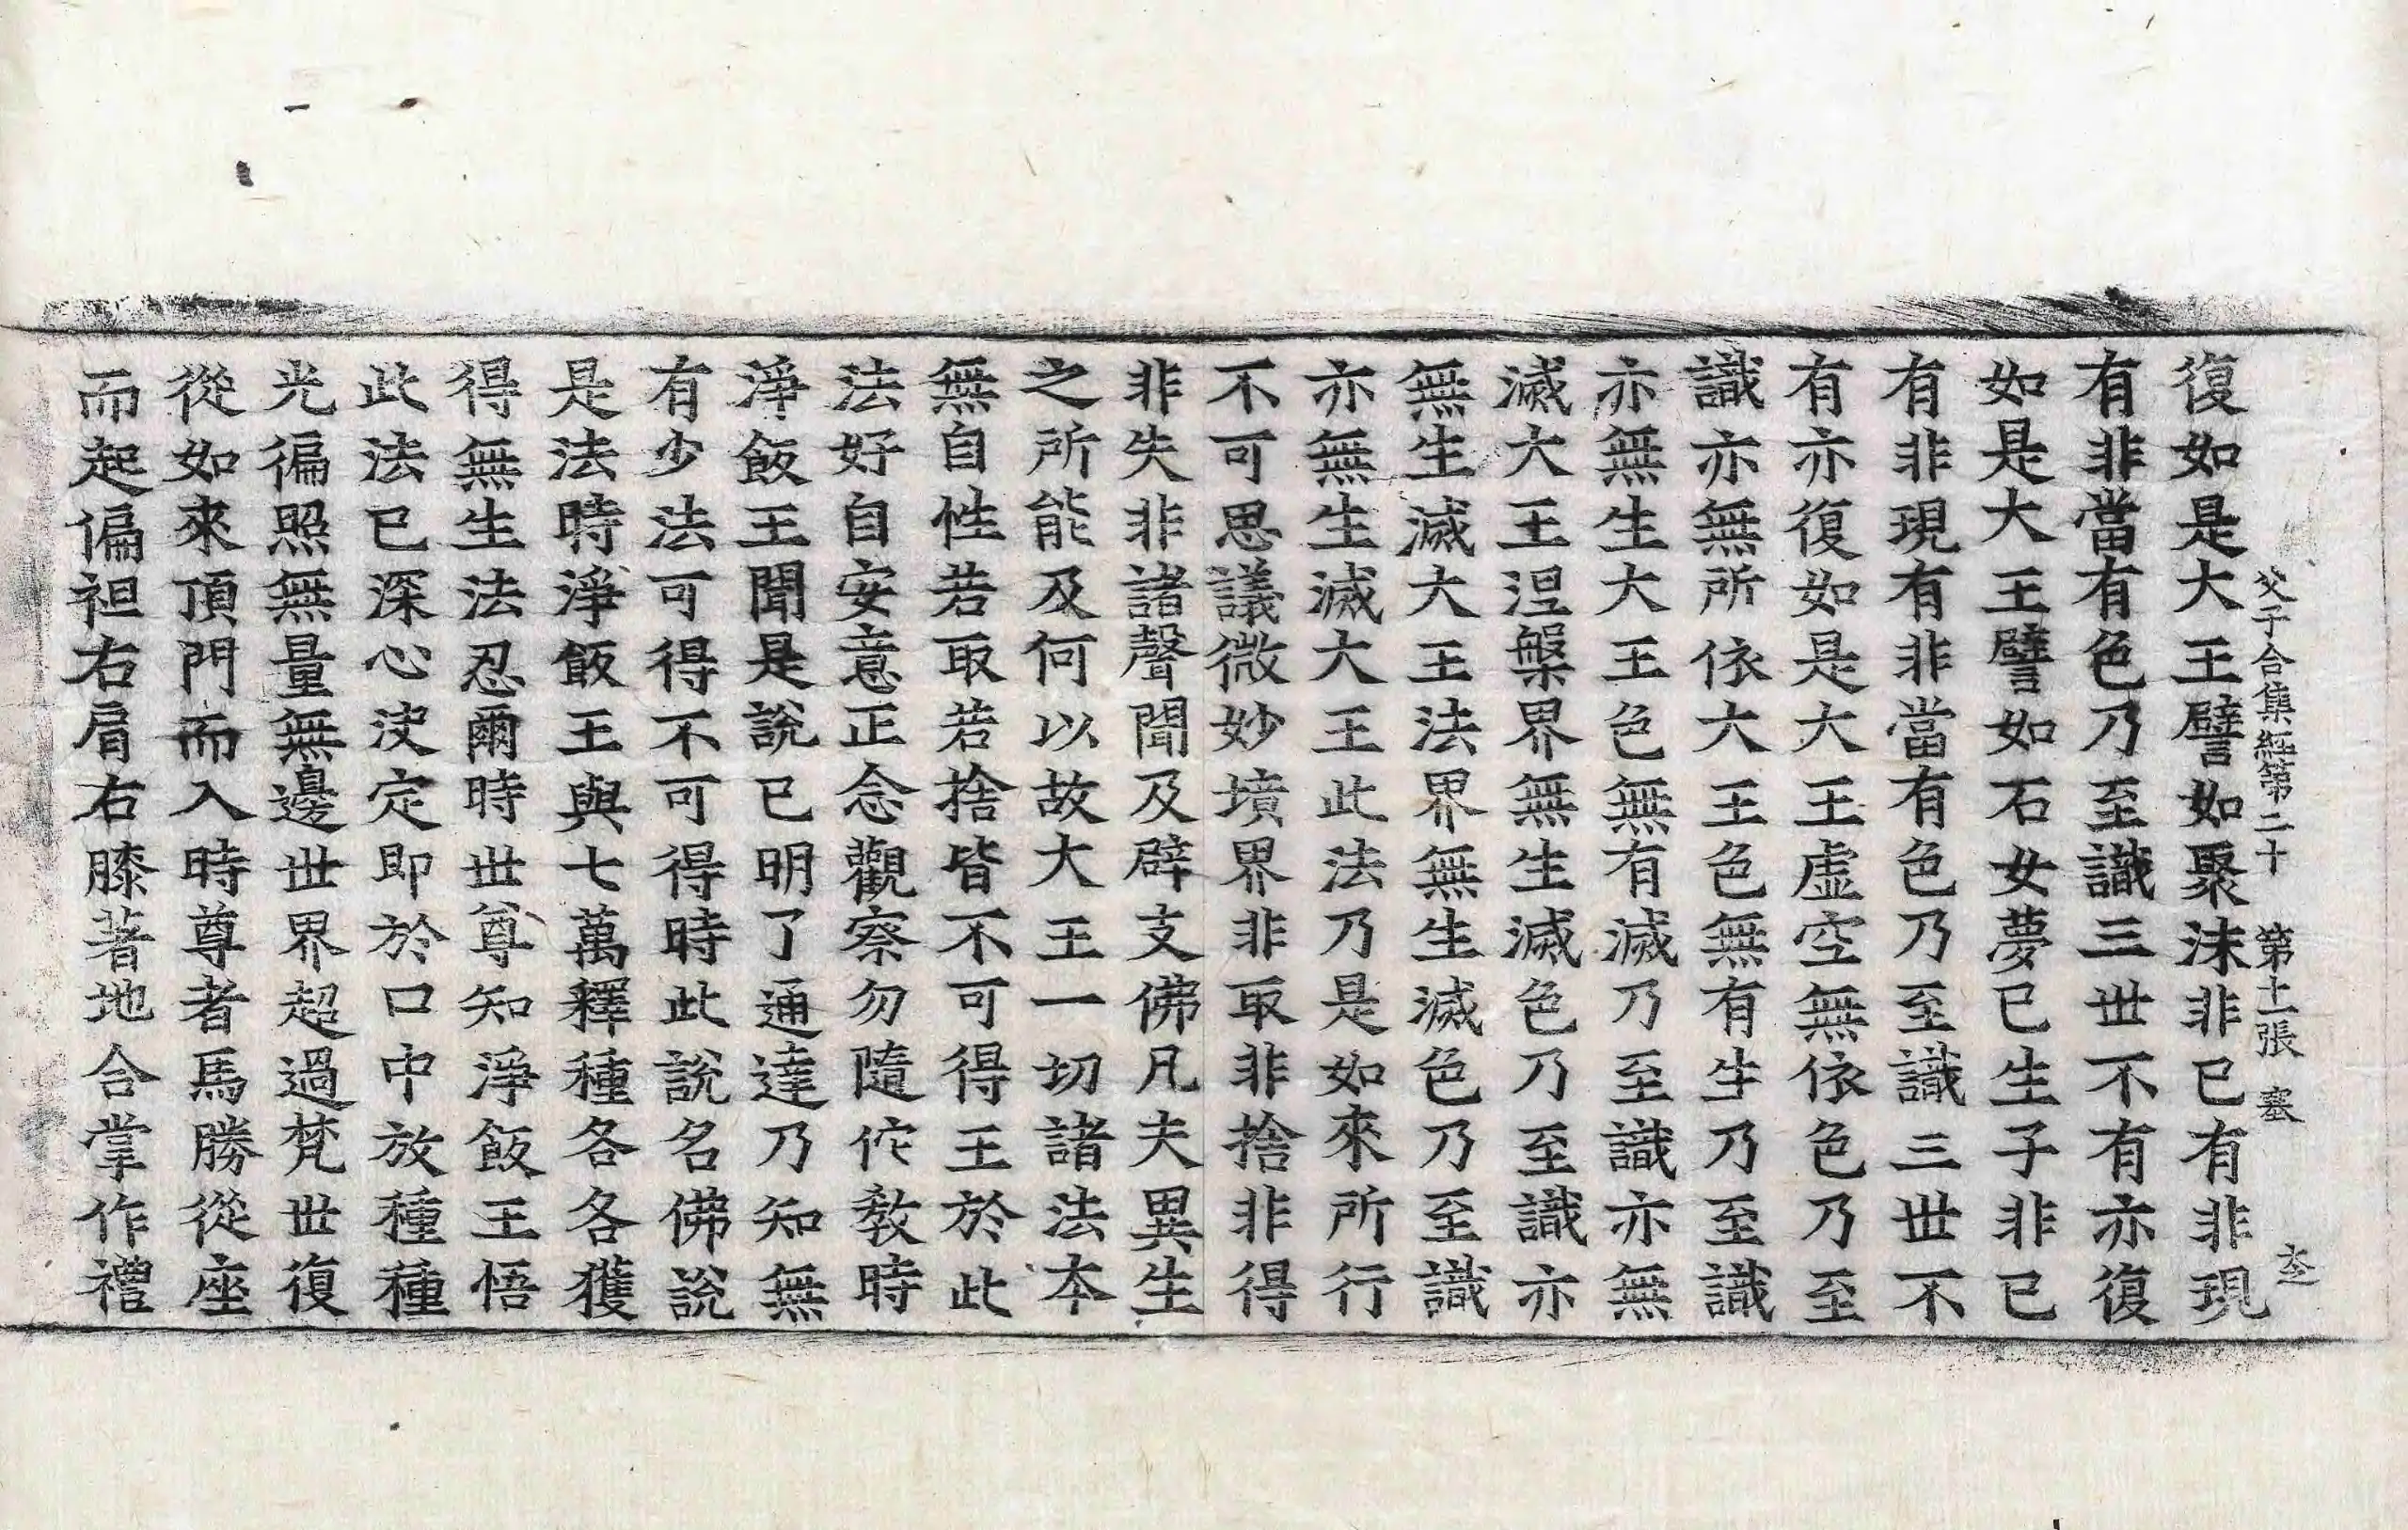 父子合集經第二十 第十一張 塞
復如是大王譬如聚沫非已有非現
有非當有色乃至識三世不有亦復
如是大王譬如石女夢已生子非已
有非現有非當有色乃至識三世不
有亦復如是大王虛空無依色乃至
識亦無所依大王色無有生乃至識
亦無生大王色無有滅乃至識亦無
滅大王涅槃界無生滅色乃至識亦
無生滅大王法界無生滅色乃至識
亦無生滅大王此法乃是如來所行
不可思議微妙墳界非取非捨非得
非失非諸聲聞及辟支佛凡夫異生
之所能及何以故大王一切諸法本
無自性若取若捨皆不可得王於此
法好自安意正念觀察勿隨佗教時
淨飯王聞是說已明了通達乃知無
有少法可得不可得時此說名佛說
是法時淨飯王與七萬釋種各各獲
得無生法忍爾時世尊知淨飯王悟
此法已深心決定即於口中放種種
光徧照無量無邊世界超過梵世復
從如來頂門而入時尊者馬勝從座
而起偏袒右肩右膝著地合掌作禮